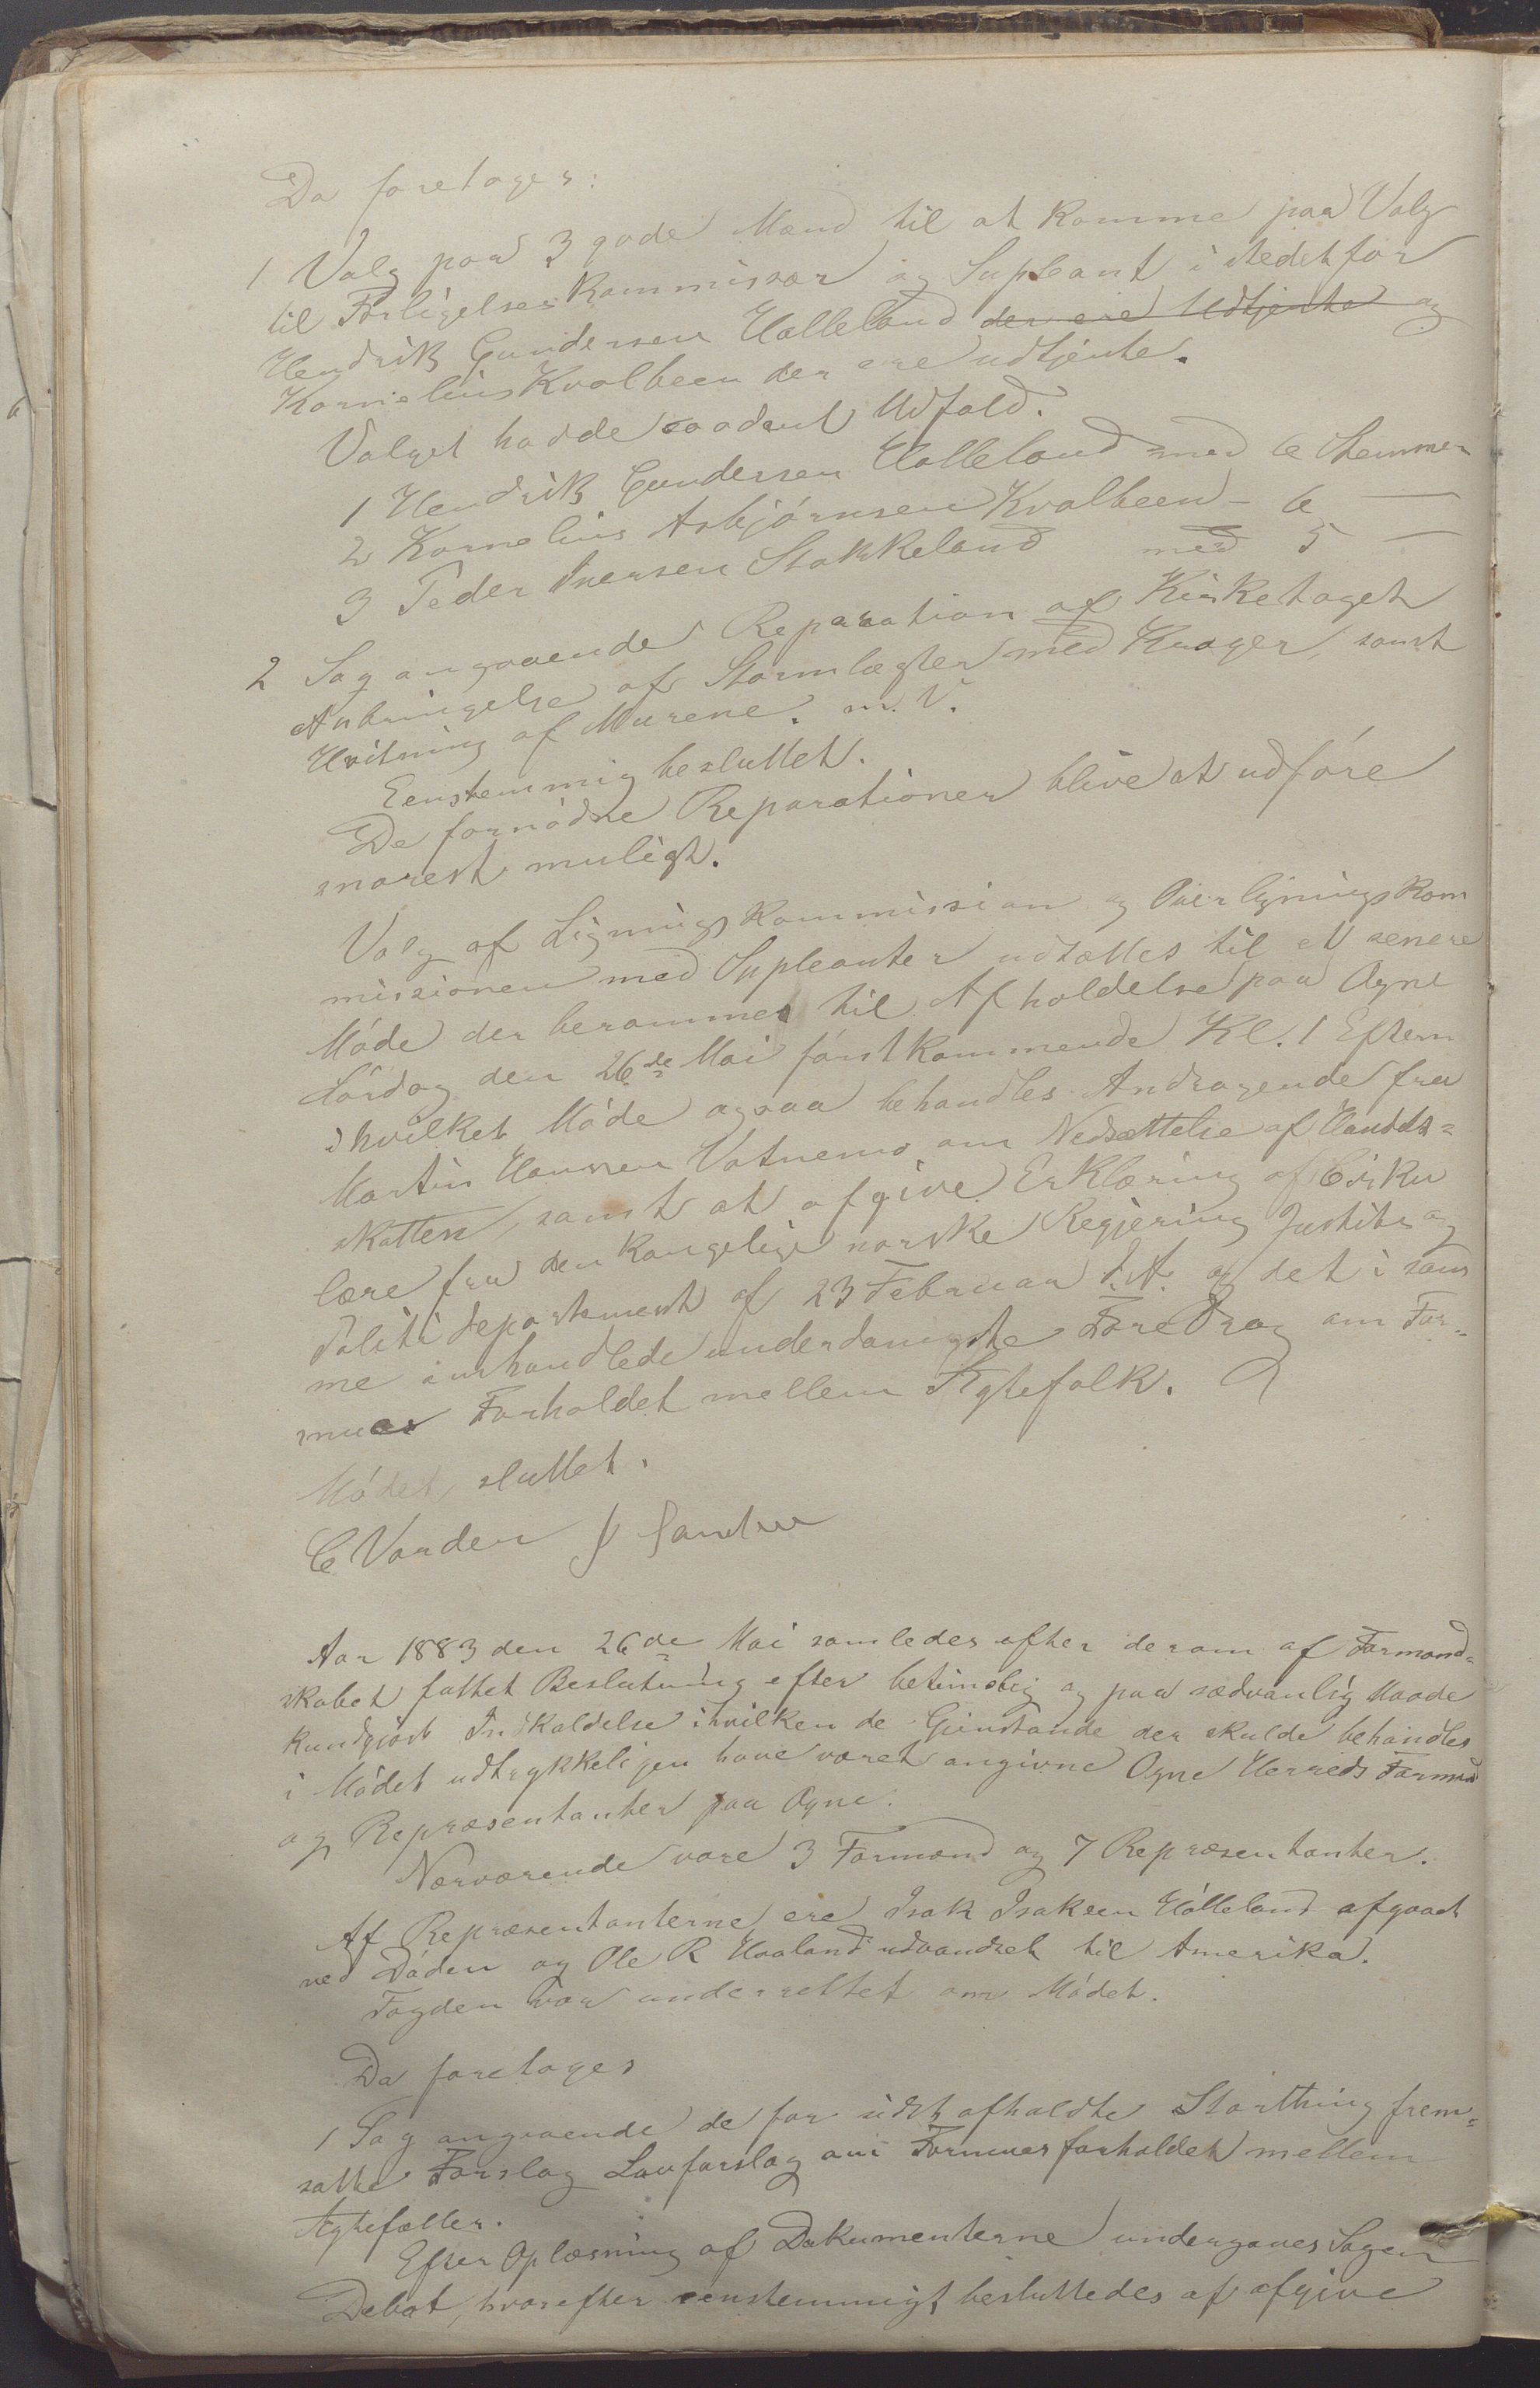 Da foretoges:
1 Valg paa 3 gode Mænd til at komme paa Valg
til Forligelseskommissær og Supleant i stedetfor
Hendrik Gundersen Halleland der ere Udtjente og
Kornelius Kvalbeen der ere udtjente.
Valget hadde saadant Udfald.
1 Hendrik Gundersen Halleland med 6 Stemmer
2 Kornelius Asbjørnsen Kvalbeen - 6 —
3 Peder Iversen Stokkeland med 5 —
2 Sag angaaende Reparation af Kirketaget
Anbringelse af Stormlægter med Kroger, samt
Hvitning af Murene. m. V.
Eenstemmig besluttet.
De fornødne Reparationer blive at udføre
snarest muligt.
Valg af Ligningskommission og Overligningskom
missionen med Supleanter udsættes til et senere
Møde der berammes til Afholdelse paa Ogne
Lørdag den 26de Mai førstkommende Kl. 1 Efterm
i hvilket Møde ogsaa behandles Andragende fra
Martin Hansen Vatnemo om Nedsættelse af Handels-
skatten, samt at afgive Erklæring af Cirku
lære fra den kongelige norske Regjering Justits og
Politidepartement af 23 Februar d.A. og det i sam
me omhandlede underdanigste Foredrag om For-
mues Forholdet mellem Ægtefolk.
Mødet sluttet.
C Varden
Aar 1883 den 26de Mai samledes efter derom af Formand-
skabet fattet Beslutning efter betimelig og paa sædvanlig Maade
kundgjort Indkaldelse i hvilken de Gjenstande der skulde behandles
i Mødet udtrykkeligen have været angivne Ogne Herreds Formænd
og Repræsentanter paa Ogne.
Nærværende vare 3 Formænd og 7 Repræsentanter.
Af Repræsentanterne ere Isak Isaksen Hølleland afgaaet
ved Døden og Ole R Haaland udvandret til Amerika.
Fogden var underrettet om Mødet.
Da foretoges
1 Sag angaaende de for sidst afholdte Storthing frem-
satte Forslag Lovforslag om Formuesforholdet mellem
Ægtefæller.
Efter Oplæsning af Dokumenterne undergaves Sagen
Debat, hvorefter eenstemmigt besluttedes at afgive